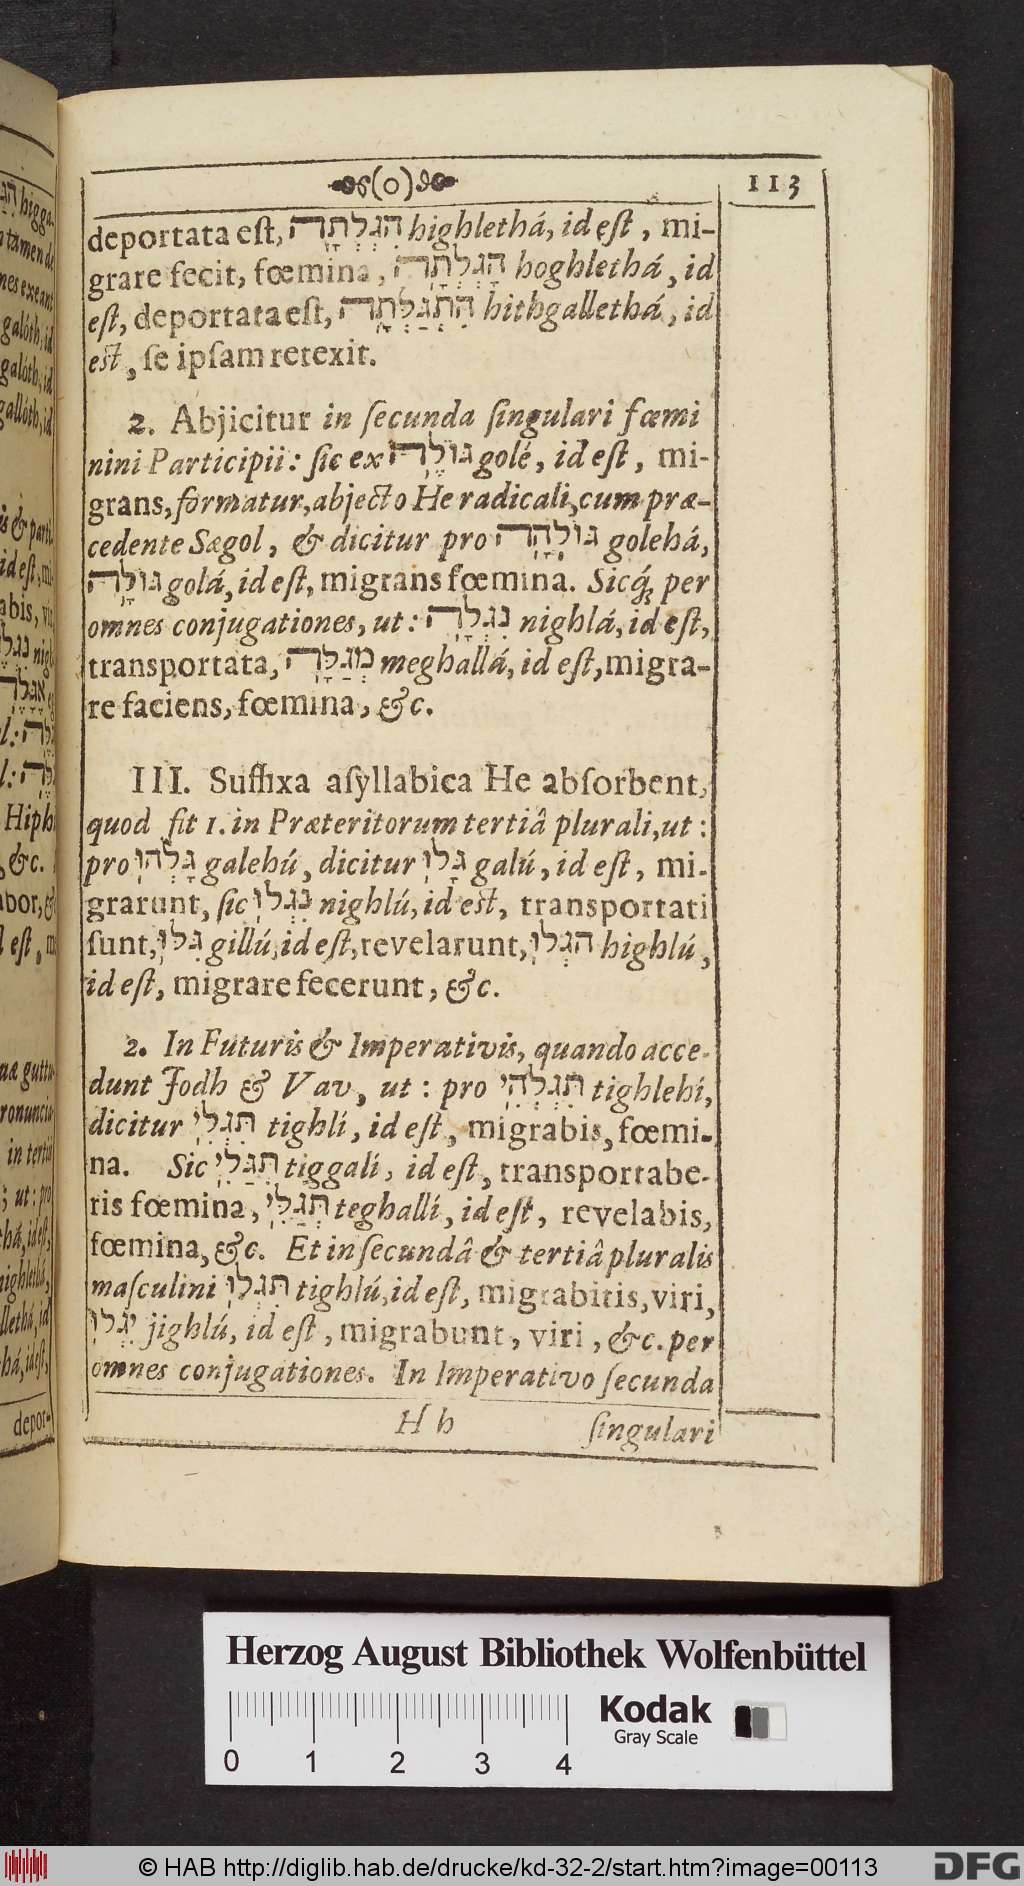 (o) 113
deportata est, הִגְלְתָה highlethá, id eſt, mi-
grare fecit, fœmina, הָגְלְתָה hoghlethá, id
eſt, deportata eſt, הִתְגַלְּתָה hithgallethá, id
est, ſe ipſam retexit.
2. Abjicitur in ſecunda ſingulari fœmi
nini Participii: ſic ex גּוֹלֶה golé, id eſt, mi-
grans, formatur, abjecto He radicali, cum præ-
cedente Sægol, & dicitur pro גּוֹלֶהָה golehá,
גּוֹלָה golá, id eſt, migrans fœmina. Sicq́; per
omnes conjugationes, ut: נִגְלָה nighlá, id eſt,
transportata, מְגַלָּה meghallá, id eſt, migra-
re faciens, fœmina, &c.
III. Suffixa aſyllabica He abſorbent,
quod fit 1. in Præteritorum tertiâ plurali, ut:
pro גָּלְהוּ galehú, dicitur גָּלוּ galú, id eſt, mi-
grarunt, ſic נִגְלוּ nighlú, id est, transportati
ſunt, גִּלוּ gillú, id eſt, revelarunt, הִגְלוּ highlú,
id eſt, migrare fecerunt, &c.
2. In Futuris & Imperativis, quando acce-
dunt Jodh & Vav, ut: pro תִּגְלְהִי tighlehí,
dicitur תִּגְלִי tighlí, id eſt, migrabis, fœmi-
na. Sic תִּגַּלִי tiggalí, id eſt, transportabe-
ris fœmina, תְּגַלִּי teghallí, id eſt, revelabis,
fœmina, &c. Et in ſecundâ & tertiâ pluralis
maſculini תִּגְלוּ tighlú, id eſt, migrabitis, viri,
יִגְלוּ jighlú, id eſt, migrabunt, viri, &c. per
omnes conjugationes. In Imperativo ſecunda
H h ſingulari
higga-
tamen de
nes exeant
galóth, id
galóth, id
gallóth, id
is & parti
id eſt, mi
abis, vi
Hiph
&c.
eſt, m
uæ guttu
pronuncia
in tertiâ
; ut: pro
thá, id eſt,
nighlethá,
llethá, id
thá, id eſt,
depor-
Herzog August Bibliothek Wolfenbüttel
0 1 2 3 4
Kodak
Gray Scale
© HAB http://diglib.hab.de/drucke/kd-32-2/start.htm?image=00113
DFG